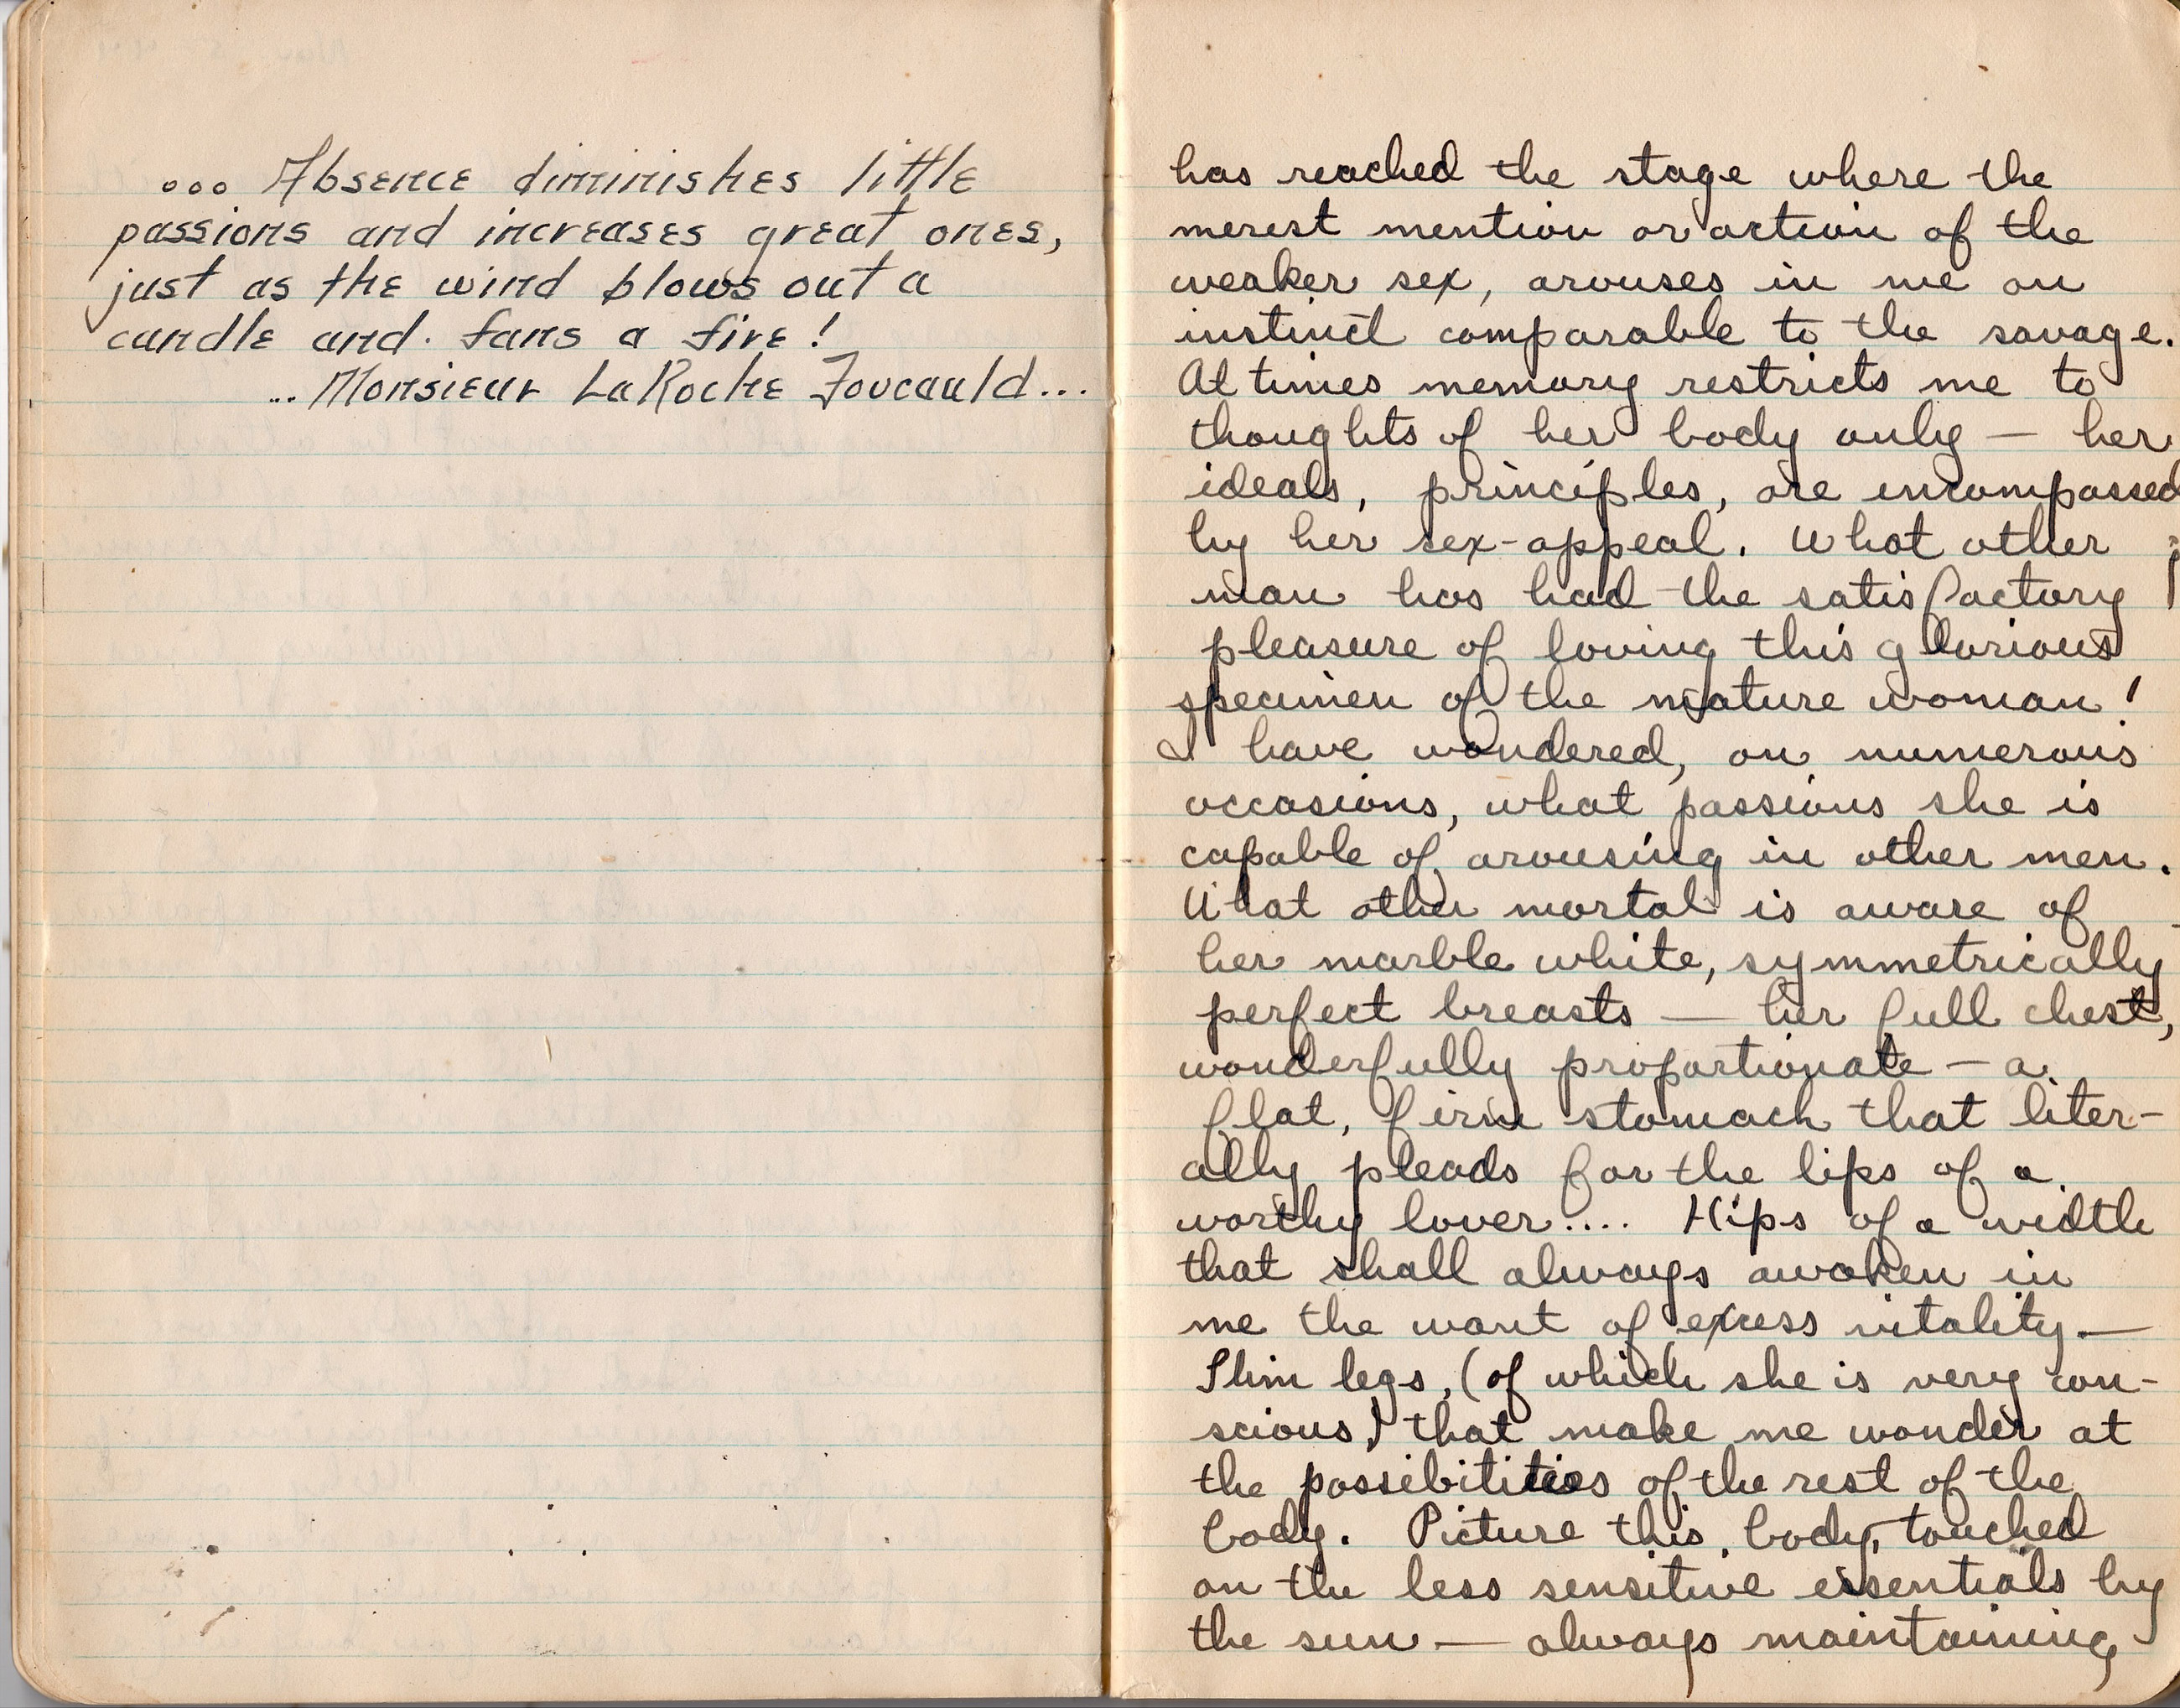 ... Absence diminishes little
passions and increases great ones,
just as the wind blows out a
candle and. fans a fire!
... Monsieur LaRoche Foucauld...
has reached the stage where the
merest mention or action of the
weaker sex, arouses in me an
instinct comparable to the savage.
At times memory restricts me to
thoughts of her body only — her
ideals, principles, are encompassed
by her sex-appeal. What other
man has had the satisfactory
pleasure of loving this glorious
specimen of the mature woman!
I have wondered, on numerous
occasions, what passions she is
capable of arousing in other men.
What other mortal is aware of
her marble white, symmetrically
perfect breasts — her full chest,
wonderfully proportionate — a
flat, firm stomach that liter-
ally pleads for the lips of a
worthy lover.... Hips of a width
that shall always awaken in
me the want of excess vitality. —
Slim legs, (of which she is very con-
scious,) that make me wonder at
the possibitities of the rest of the
body. Picture this body, touched
on the less sensitive essentials by
the sun — always maintaining